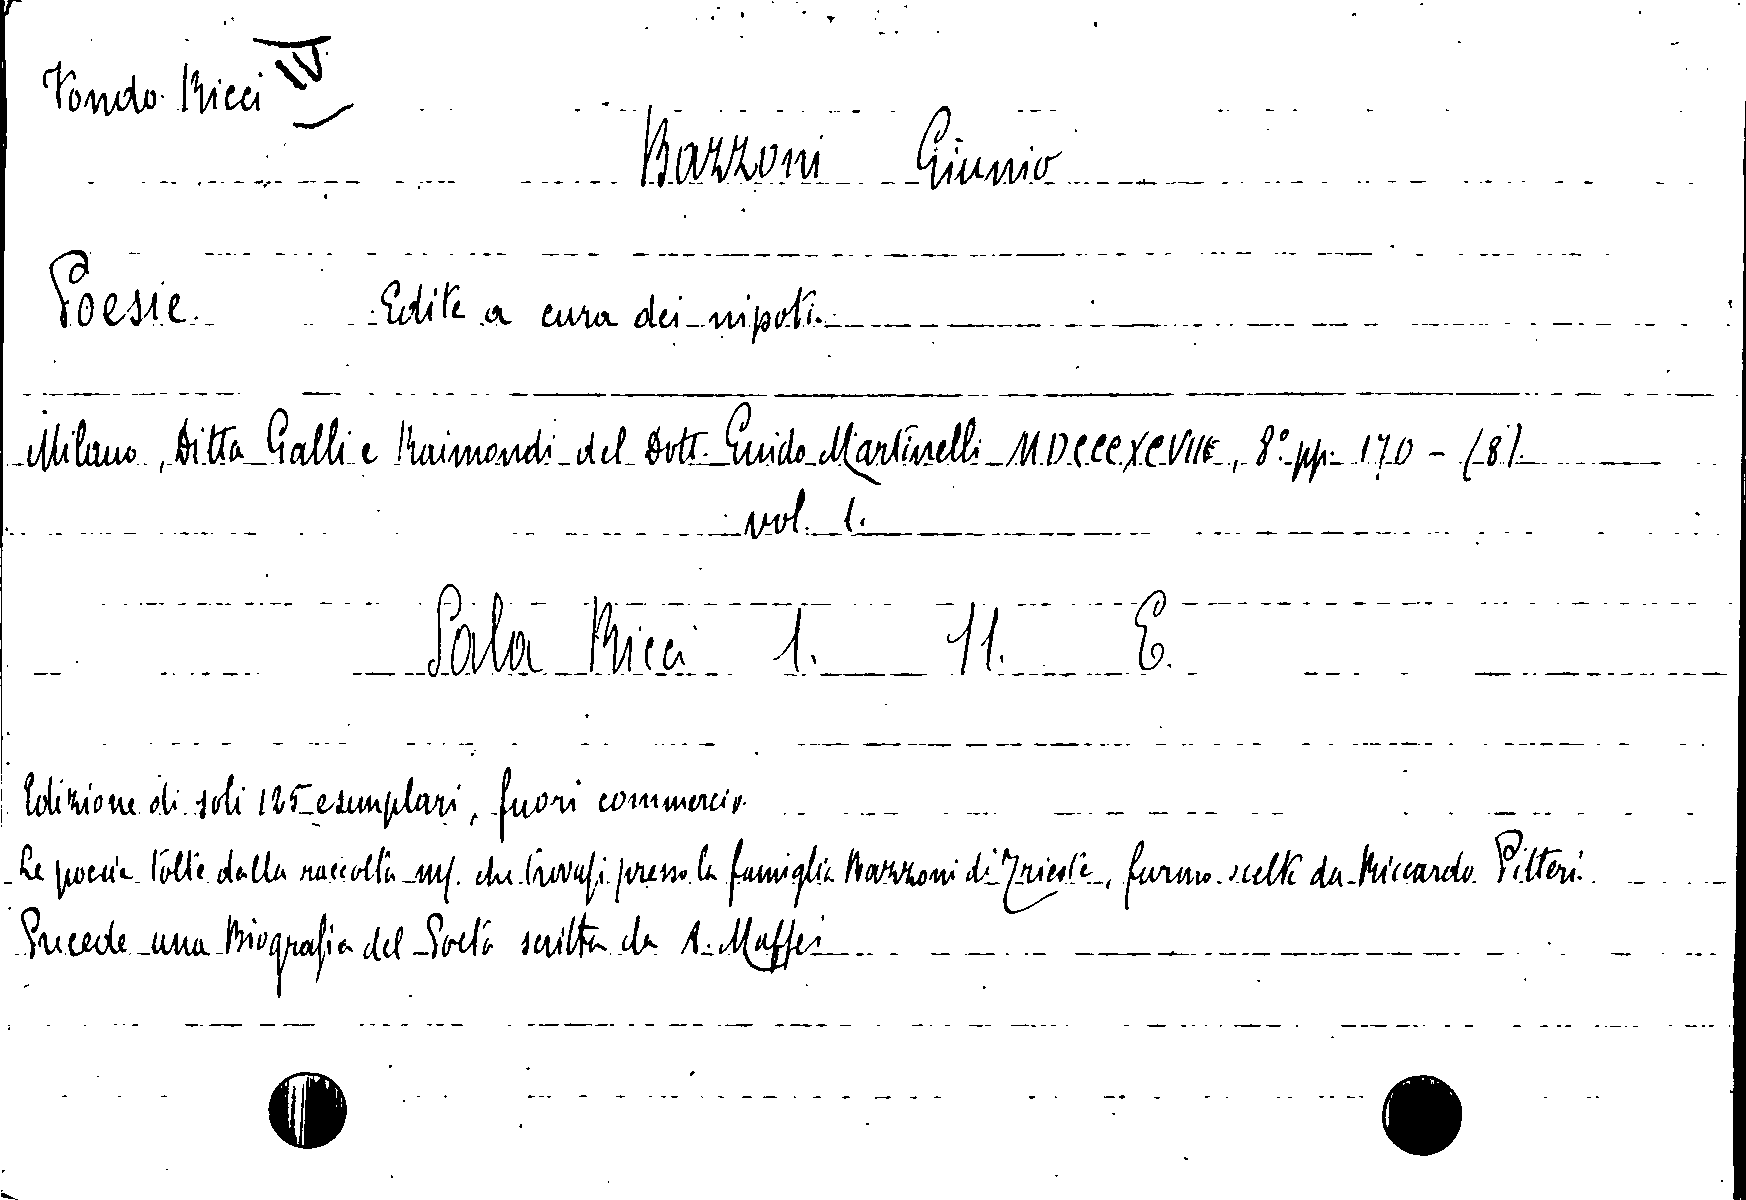 Fondo Ricci IV
Bazzoni Giunio
Poesie. Edite a cura dei nipoti.
Milano, Ditta Galli e Raimondi del Dott. Guido Martinelli MDCCCXCVIII, 8° pp. 170 - (8).
vol. 1.
Sala Ricci 1. 11. E.
Edizione di soli 125 esemplari, fuori commercio.
Le poesie tolte dalla raccolta ms. che trovasi presso la famiglia Bazzoni di Trieste, furono scelte da Riccardo Pitteri.
Precede una Biografia del Poeta scritta da A. Maffei